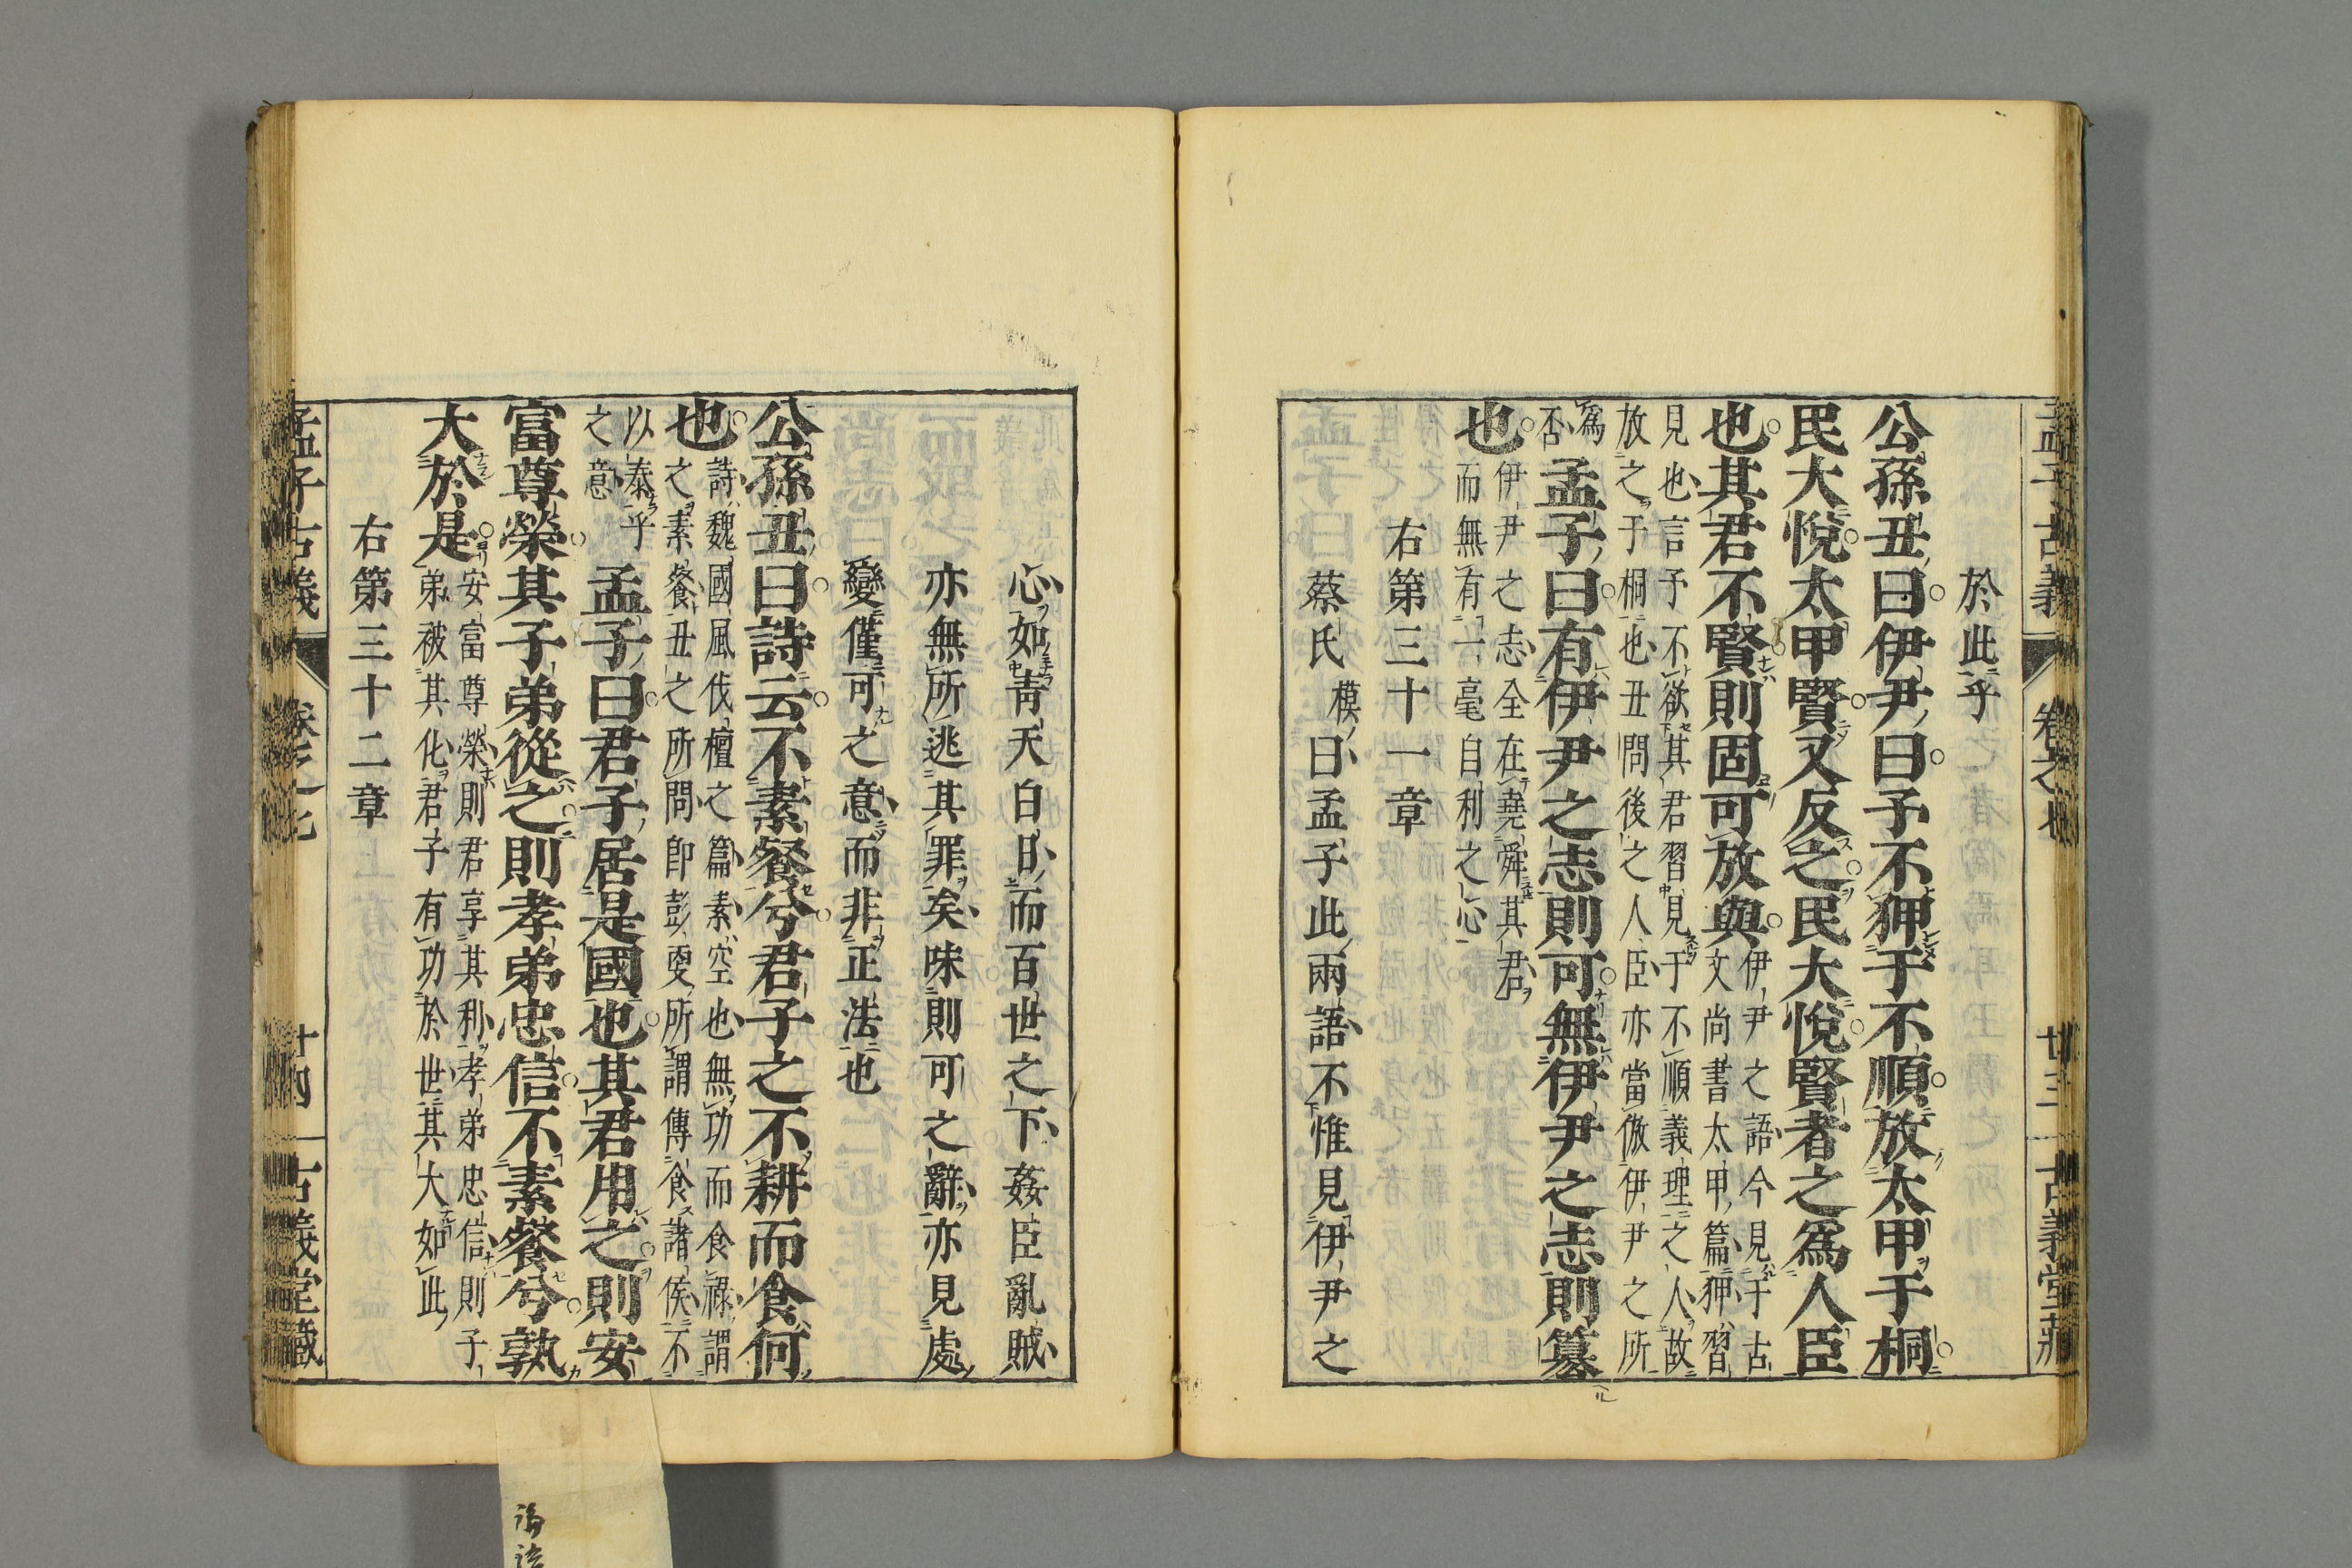 孟子古義 卷之七 廿三 古義堂藏
於此乎
公孫丑曰伊尹曰予不狎于不順放太甲于桐
民大悅太甲賢又反之民大悅賢者之爲人臣
也其君不賢則固可放與
伊尹之語今見于古
文尚書太甲篇狎習
見也言予不欲其君習見于不順義理之人故
放之于桐也丑問後之人臣亦當倣伊尹之所
爲
否
孟子曰有伊尹之志則可無伊尹之志則簒
也
伊尹之志全在堯舜其君
而無有一毫自利之心
右第三十一章
蔡氏模曰孟子此兩語不惟見伊尹之
心如靑天白日而百世之下姦臣亂賊
亦無所逃其罪矣味則可之辭亦見處
變僅可之意而非正法也
公孫丑曰詩云不素餐兮君子之不耕而食何
也
詩魏國風伐檀之篇素空也無功而食祿謂
之素餐丑之所問卽彭更所謂傳食諸侯不
以泰乎
之意
孟子曰君子居是國也其君用之則安
富尊榮其子弟從之則孝弟忠信不素餐兮孰
大於是
安富尊榮則君享其利孝弟忠信則子
弟被其化君子有功於世其大如此
右第三十二章
孟子古義 卷之七 廿四 古義堂藏